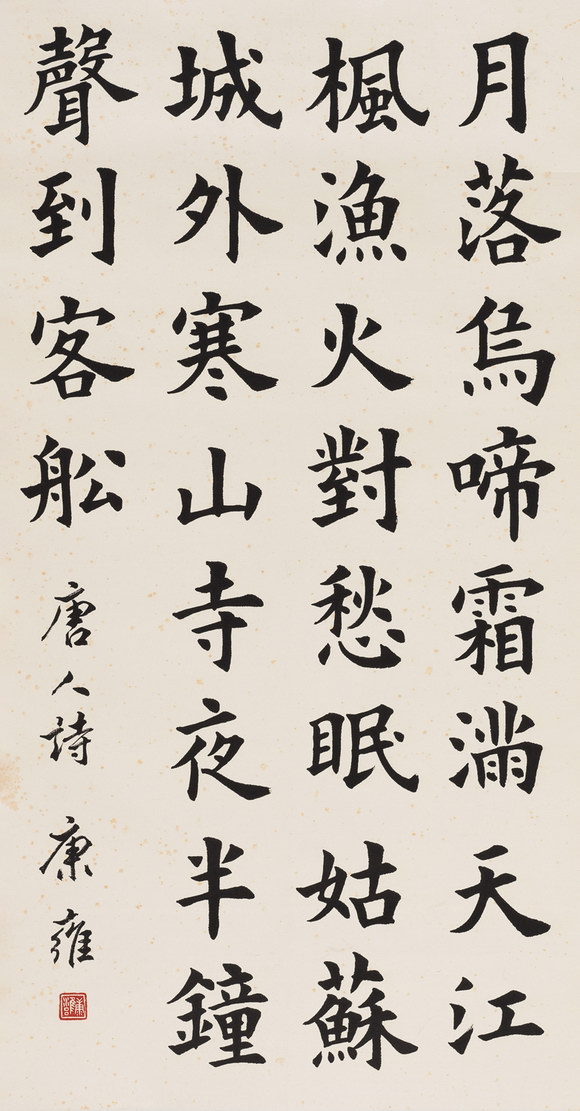 月落烏啼霜滿天江
楓漁火對愁眠姑蘇
城外寒山寺夜半鐘
聲到客舩
唐人詩 康雍